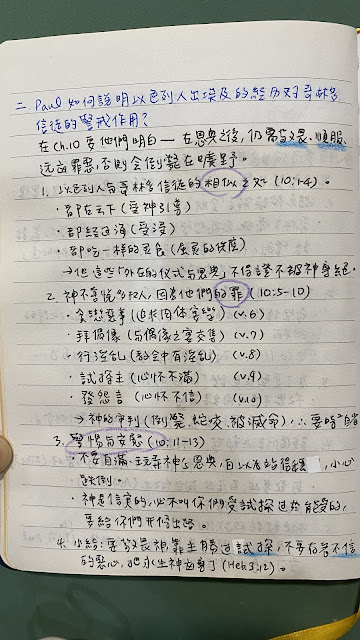 二. Paul 如何說明以色列人出埃及的經历对哥林多
信徒的警戒作用?
在 ch.10 要他們明白 — 在恩典之後, 仍需敬畏、順服、
远离罪惡, 否則会倒斃在曠野。
1. 以色列人与哥林多信徒的相似之处 (10:1-4)。
・都在云下 (受神引導)
・都經過海 (受浸)
・都吃一样的灵食 (灵
→但這些外在的仪式与恩典, 不保證不被神
2. 神不喜悅的人, 因為他們的罪 (10:5-10)
・貪戀惡事 (追求肉体 (v.6)
・拜偶像 (与偶像之宴交集) (v.7)
・行淫乱 (教会中有淫乱) (v.8)
・試探主 (心怀不滿) (v.9)
・發怨言 (心怀不信) (v.10)
→神的审判 (倒斃、蛇咬、被滅命), ∴要時々自省
3. 警惕与安慰 (10:11-13)
・不要自滿、玩弄神的恩典, 自以為站得穩, 小心
跌倒。
・神是信实的, 必不叫你們受試探过於能受的,
要給你們开條出路。
4. 小結: 要敬畏神, 靠主勝过試探, 不要存着不信
的惡心, 把永生神離棄了 (Heb.3:12)。